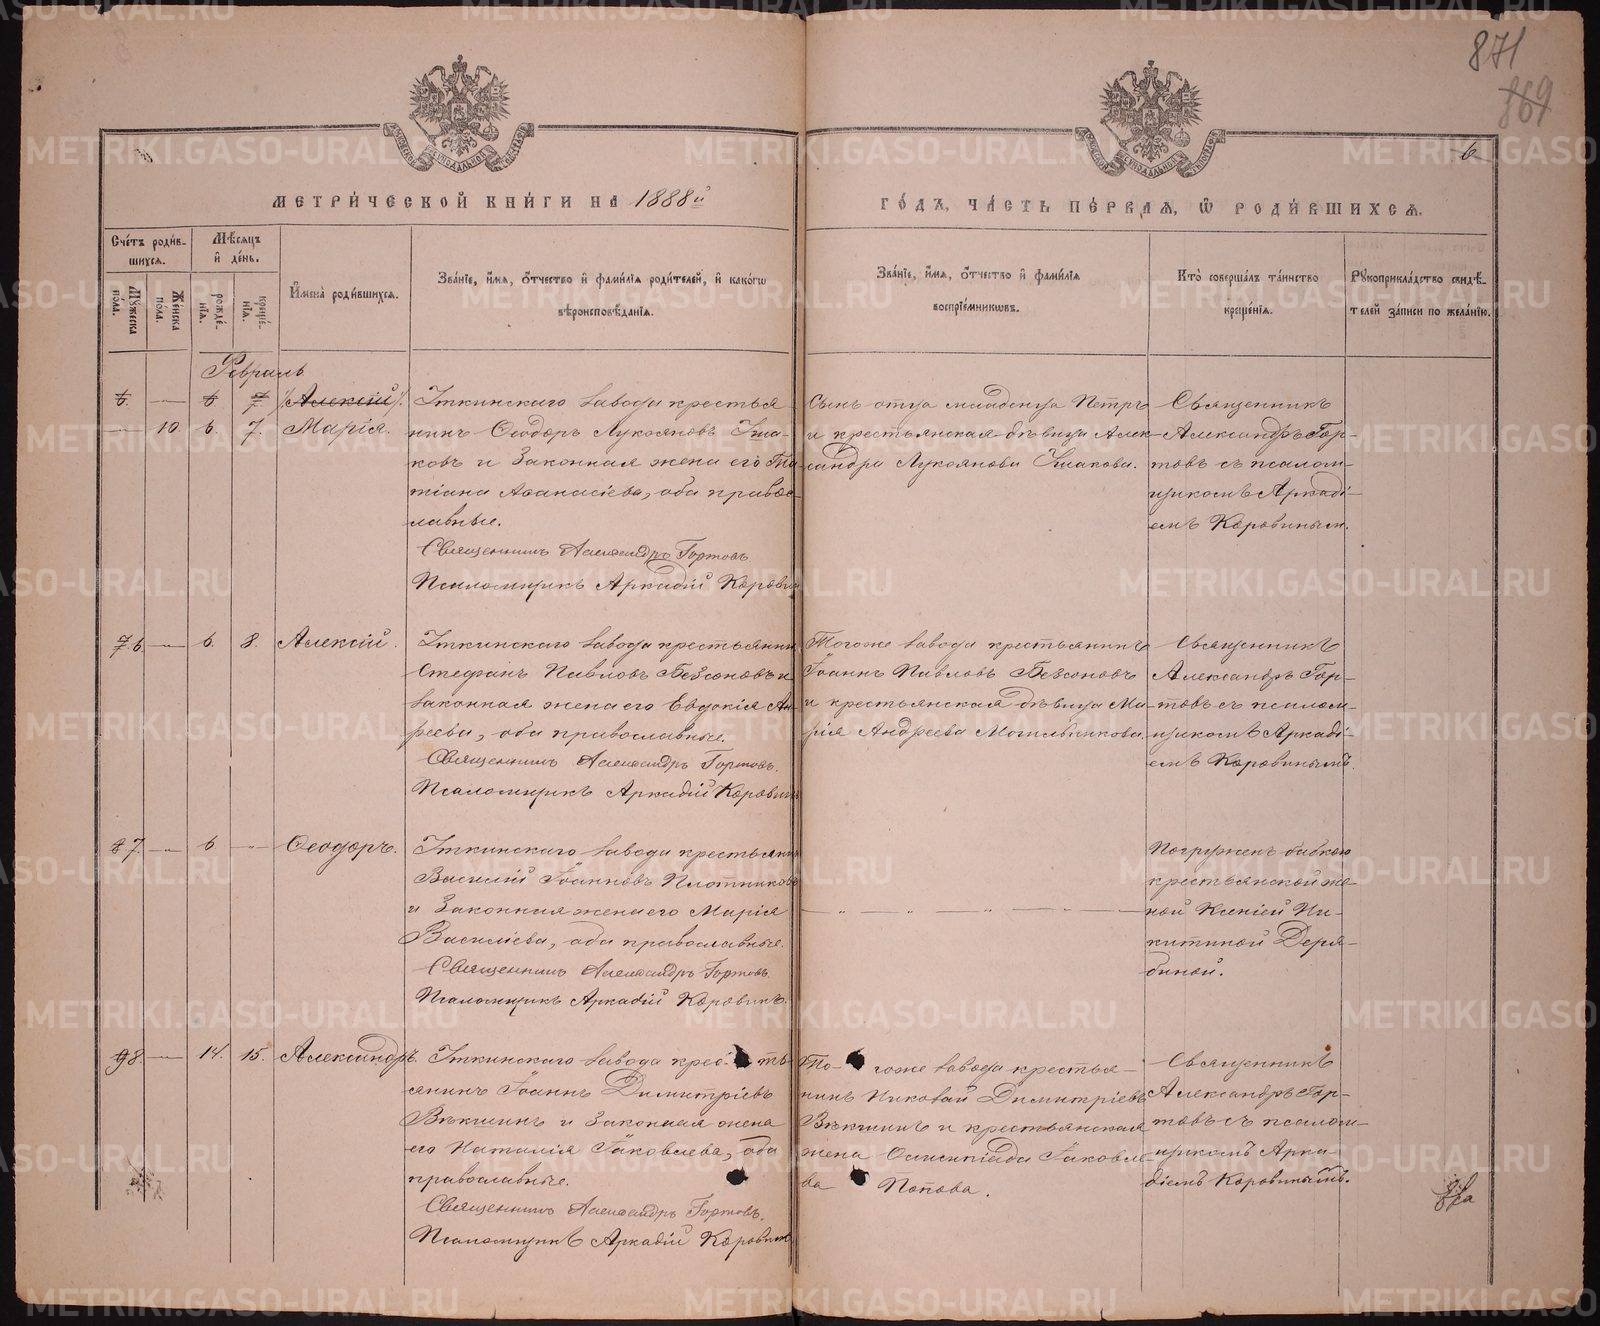 871
869
6
МЕТРИ́ЧЕСКОЙ КНИ́ГИ НА 1888й
ГО́ДЪ, ЧА́СТЬ ПЕ́РВАѦ, Ѡ РОДИ́ВШИХСѦ.
Сче́тъ роди́в-
шихся.
Мѣ́сяцъ
и҆ де́нь.
Му́жеска
по́ла.
Же́нска
по́ла.
рожде́-
нїѧ.
креще́-
нїѧ.
И҆мена̀ роди́вшихсѧ.
Зва́нїе, и҆́мѧ, ѻ҆́тчество и҆ фами́лїѧ роди́телей, и҆ како́гѡ
вѣроисповѣ́данїѧ.
Зва́нїе, и҆́мѧ, ѻ҆́тчество и҆ фами́лїѧ
воспрїе́мникѡвъ.
Кто̀ соверша́лъ та́инство
креще́нїѧ.
Рꙋкоприкла́дство свидѣ́-
телей за́писи по жела́нїю.
Февраль
6. — 6 7. /Алексій/.
— 10 6. 7. Марія.
Уткинскаго завода крестья
нинъ Ѳеодоръ Лукояновъ Ушa-
ковъ и Законная жена его Та
тіана Аѳанасіева, оба правос-
лавные.
Священникъ Александръ Гортовъ
Псаломщикъ Аркадій Коровин
Сынъ отца младенца Петръ
и крестьянская дѣвица Алек-
сандра Лукоянова Ушакова.
Священникъ
Александръ Гор-
товъ съ псалом-
щикомъ Аркаді-
емъ Коровиным.
7. 6 — 6. 8. Алексій.
Уткинскаго завода крестьянин
Стефанъ Павловъ Безсоновъ и
законная жена его Евдокія Ан-
реева, оба православные.
Священникъ Александръ Гортовъ.
Псаломщикъ Аркадій Коровин
Тогоже завода крестьянинъ
Іоаннъ Павловъ Безсоновъ
и крестьянская дѣвица Ма-
рія Андреева Могильникова.
Священникъ
Александръ Гор-
товъ съ псалом-
щикомъ Аркаді-
емъ Коровинымъ.
8 7. — 6 — Ѳеодоръ.
Уткинскаго завода крестьянин
Василій Іоанновъ Плотниковъ
и Законная жена его Марія
Василіева, оба православные.
Священникъ Александръ Гортовъ.
Псаломщикъ Аркадій Коровинъ.
— „ — „ — „ — „ —
Погруженъ бабкою
крестьянской же-
ной Ксеніей Ни-
китиной Деря-
биной.
9 8. — 14. 15. Александръ.
Уткинскаго завода крес- ть-
янинъ Іоаннъ Димитріевъ
Вѣкшинъ и Законная жена
его Наталія Іаковлева, оба
православные.
Священникъ Александръ Гортовъ.
Псаломщикъ Аркадій Коровин
То- гоже завода крестья-
нинъ Николай Димитріевъ
Вѣкшинъ и крестьянская
жена Олимпіада Іаковле
ва Попова.
Священникъ
Александръ Гор-
товъ съ псалом-
щикомъ Арка-
діемъ Коровинымъ.
METRIKI.GASO-URAL.RU